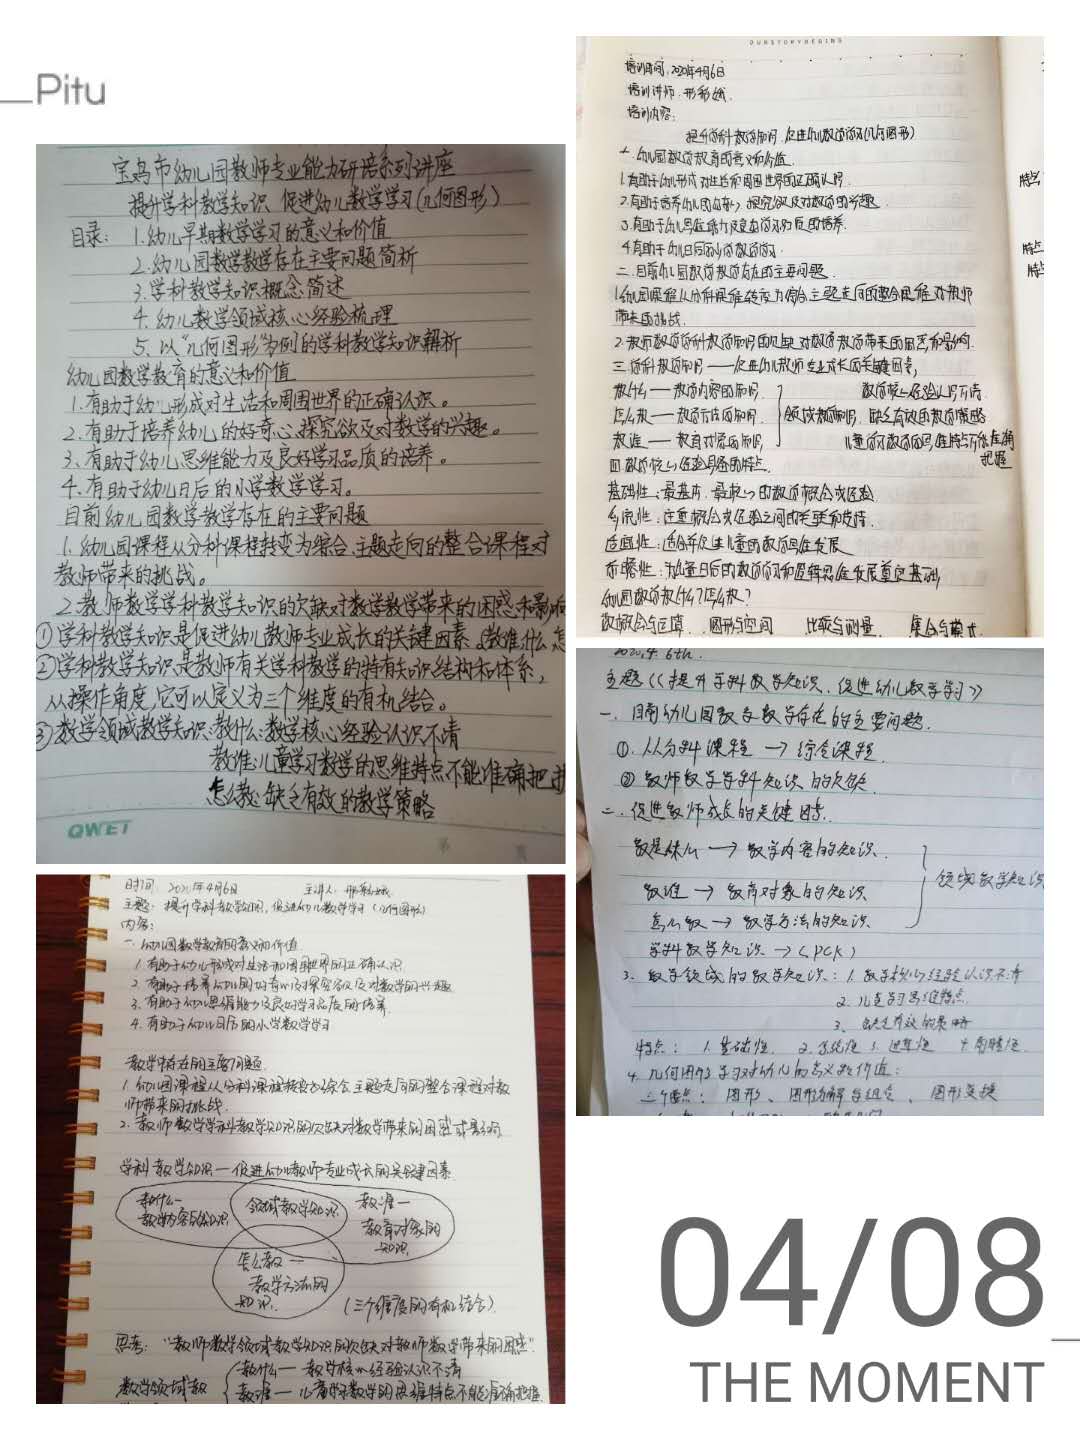 Pitu
宝鸟市幼儿园教师专业能力研培系列讲座
提升学科教学知识 促进幼儿数学学习(几何图形)
目录: 1.幼儿早期数学学习的意义和价值
2.幼儿园数学教学存在主要问题简析
3.学科教学知识概念简述
4.幼儿数学领域核心经验梳理
5.以"几何图形"为例的学科教学知识解析
幼儿园数学教育的意义和价值
1.有助于幼儿形成对生活和周围世界的正确认识。
2.有助于培养幼儿的好奇心、探究欲及对数学的兴趣。
3、有助于幼儿思维能力及良好学习品质的培养。
4、有助于幼儿日后的小学数学学习。
目前幼儿园数学教学存在的主要问题
1.幼儿园课程从分科课程转变为综合、主题走向的整合课程对
教师带来的挑战。
2.教师数学学科教学知识的欠缺对数学教学带来的困惑和影响
①学科教学知识是促进幼儿教师专业成长的关键因素。教谁什么怎
②学科教学知识是教师有关学科教学的特有知识结构和体系,
从操作角度,它可以定义为三个维度的有机结合。
③数学领域教学知识:教什么:数学核心经验认识不清
教谁:儿童学习数学的思维特点不能准确把握
怎么教:缺乏有效的教学策略
QWET
OURSTORYBEGINS
培训时间:2020年4月6日
培训讲师:邢彩娥
培训内容:
提升学科教学知识,促进幼儿数学学习(几何图形)
一.幼儿园数学教育的意义和价值.
1.有助于幼儿形成对生活和周围世界的正确认识.
2.有助于培养幼儿的好奇心、探究欲及对数学的兴趣.
3.有助于幼儿思维能力及良好学习品质的培养.
4.有助于幼儿日后的小学数学学习.
二.目前幼儿园数学教学存在的主要问题.
1.幼儿园课程从分科课程转变为综合、主题走向的整合课程对教师
带来的挑战.
2.教师数学学科教学知识的欠缺对数学教学带来的困惑和影响.
三.学科教学知识——促进幼儿教师专业成长的关键因素,
教什么——教学内容的知识. 数学核心经验认识不清
怎么教——教学方法的知识. 领域教学知识. 缺乏有效的教学策略
教谁——教育对象的知识. 儿童学习数学的思维特点不能准确
把握
四.数学核心经验具备的特点.
基础性:最基本、最核心的数学概念或经验
系统性:注重概念或经验之间的关联和支持.
适宜性:适合并促进儿童的数学思维发展
前瞻性:为儿童日后的数学学习和逻辑思维发展奠定基础
幼儿园数学教什么?怎么教?
数概念与运算. 图形与空间 比较与测量. 集合与模式.
特点
特点
特点
2020.4.6th.
主题《提升学科教学知识、促进幼儿数学学习》
一.目前幼儿园数学教学存在的主要问题.
①.从分科课程→综合课程.
②教师数学学科知识的欠缺.
二.促进教师成长的关键因素.
教是什么→教学内容的知识.
教谁→教育对象的知识. 领域教学知识
怎么教→教学方法的知识.
学科教学知识→(PCK)
3.数学领域的教学知识:1.数学核心经验认识不清
2.儿童学习思维特点.
3、缺乏有效的策略
特点: 1.基础性. 2.系统性 3.适宜性 4.前瞻性.
4.几何图形学习对幼儿的意义和价值:
三个要点: 图形、图形分解与组合、图形变换
时间:2020年4月6日 主讲人:邢彩娥
主题:提升学科教学知识,促进幼儿数学学习(几何图形)
内容:
一.幼儿园数学教育的意义和价值
1.有助于幼儿形成对生活和周围世界的正确认识.
2.有助于培养幼儿的好奇心、探究欲及对数学的兴趣
3.有助于幼儿思维能力及良好学习品质的培养.
4.有助于幼儿日后的小学数学学习
教学存在的主要问题.
1.幼儿园课程从分科课程转变为综合、主题走向的整合课程对教
师带来的挑战.
2.教师数学学科教学知识的欠缺对数学带来的困惑或影响.
学科教学知识—促进幼儿教师专业成长的关键因素.
教什么—
教学内容的知识
领域教学知识
教谁—
教育对象的
知识.
怎么教—
教学方法的
知识.
(三个维度的有机结合)
思考:"教师数学领域教学知识的欠缺对教师教学带来的困惑"
教什么—数学核心经验认识不清
数学领域教
教谁—儿童学习数学的思维特点不能准确把握
04/08
THE MOMENT